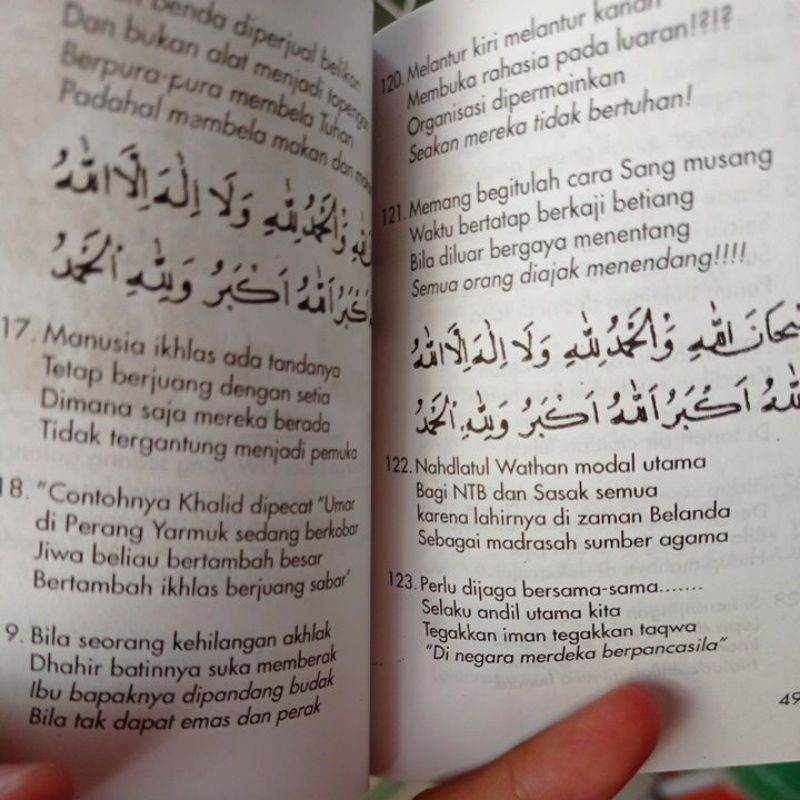 benda diperjual belikan
Dan bukan alat menjadi topengan
Berpura-pura membela Tuhan
Padahal membela makan dan
وَالْحَمْدُ لِلّٰهِ وَلَا اِلٰهَ اِلَّا اللّٰهُ
اَكْبَرُ اَللّٰهُ اَكْبَرُ وَلِلّٰهِ الْحَمْدُ
17. Manusia ikhlas ada tandanya
Tetap berjuang dengan setia
Dimana saja mereka berada
Tidak tergantung menjadi pemuka
18. "Contohnya Khalid dipecat "Umar
di Perang Yarmuk sedang berkobar
Jiwa beliau bertambah besar
Bertambah ikhlas berjuang sabar"
9. Bila seorang kehilangan akhlak
Dhahir batinnya suka memberak
Ibu bapaknya dipandang budak
Bila tak dapat emas dan perak
120. Melantur kiri melantur kanan
Membuka rahasia pada luaran!?!?
Organisasi dipermainkan
Seakan mereka tidak bertuhan!
121. Memang begitulah cara Sang musang
Waktu bertatap berkaji betiang
Bila diluar bergaya menentang
Semua orang diajak menendang!!!!
سُبْحَانَ اللّٰهِ وَالْحَمْدُ لِلّٰهِ وَلَا اِلٰهَ اِلَّا اللّٰهُ
اَللّٰهُ اَكْبَرُ اَللّٰهُ اَكْبَرُ وَلِلّٰهِ الْحَمْدُ
122. Nahdlatul Wathan modal utama
Bagi NTB dan Sasak semua
karena lahirnya di zaman Belanda
Sebagai madrasah sumber agama
123. Perlu dijaga bersama-sama.......
Selaku andil utama kita
Tegakkan iman tegakkan taqwa
"Di negara merdeka berpancasila"
49